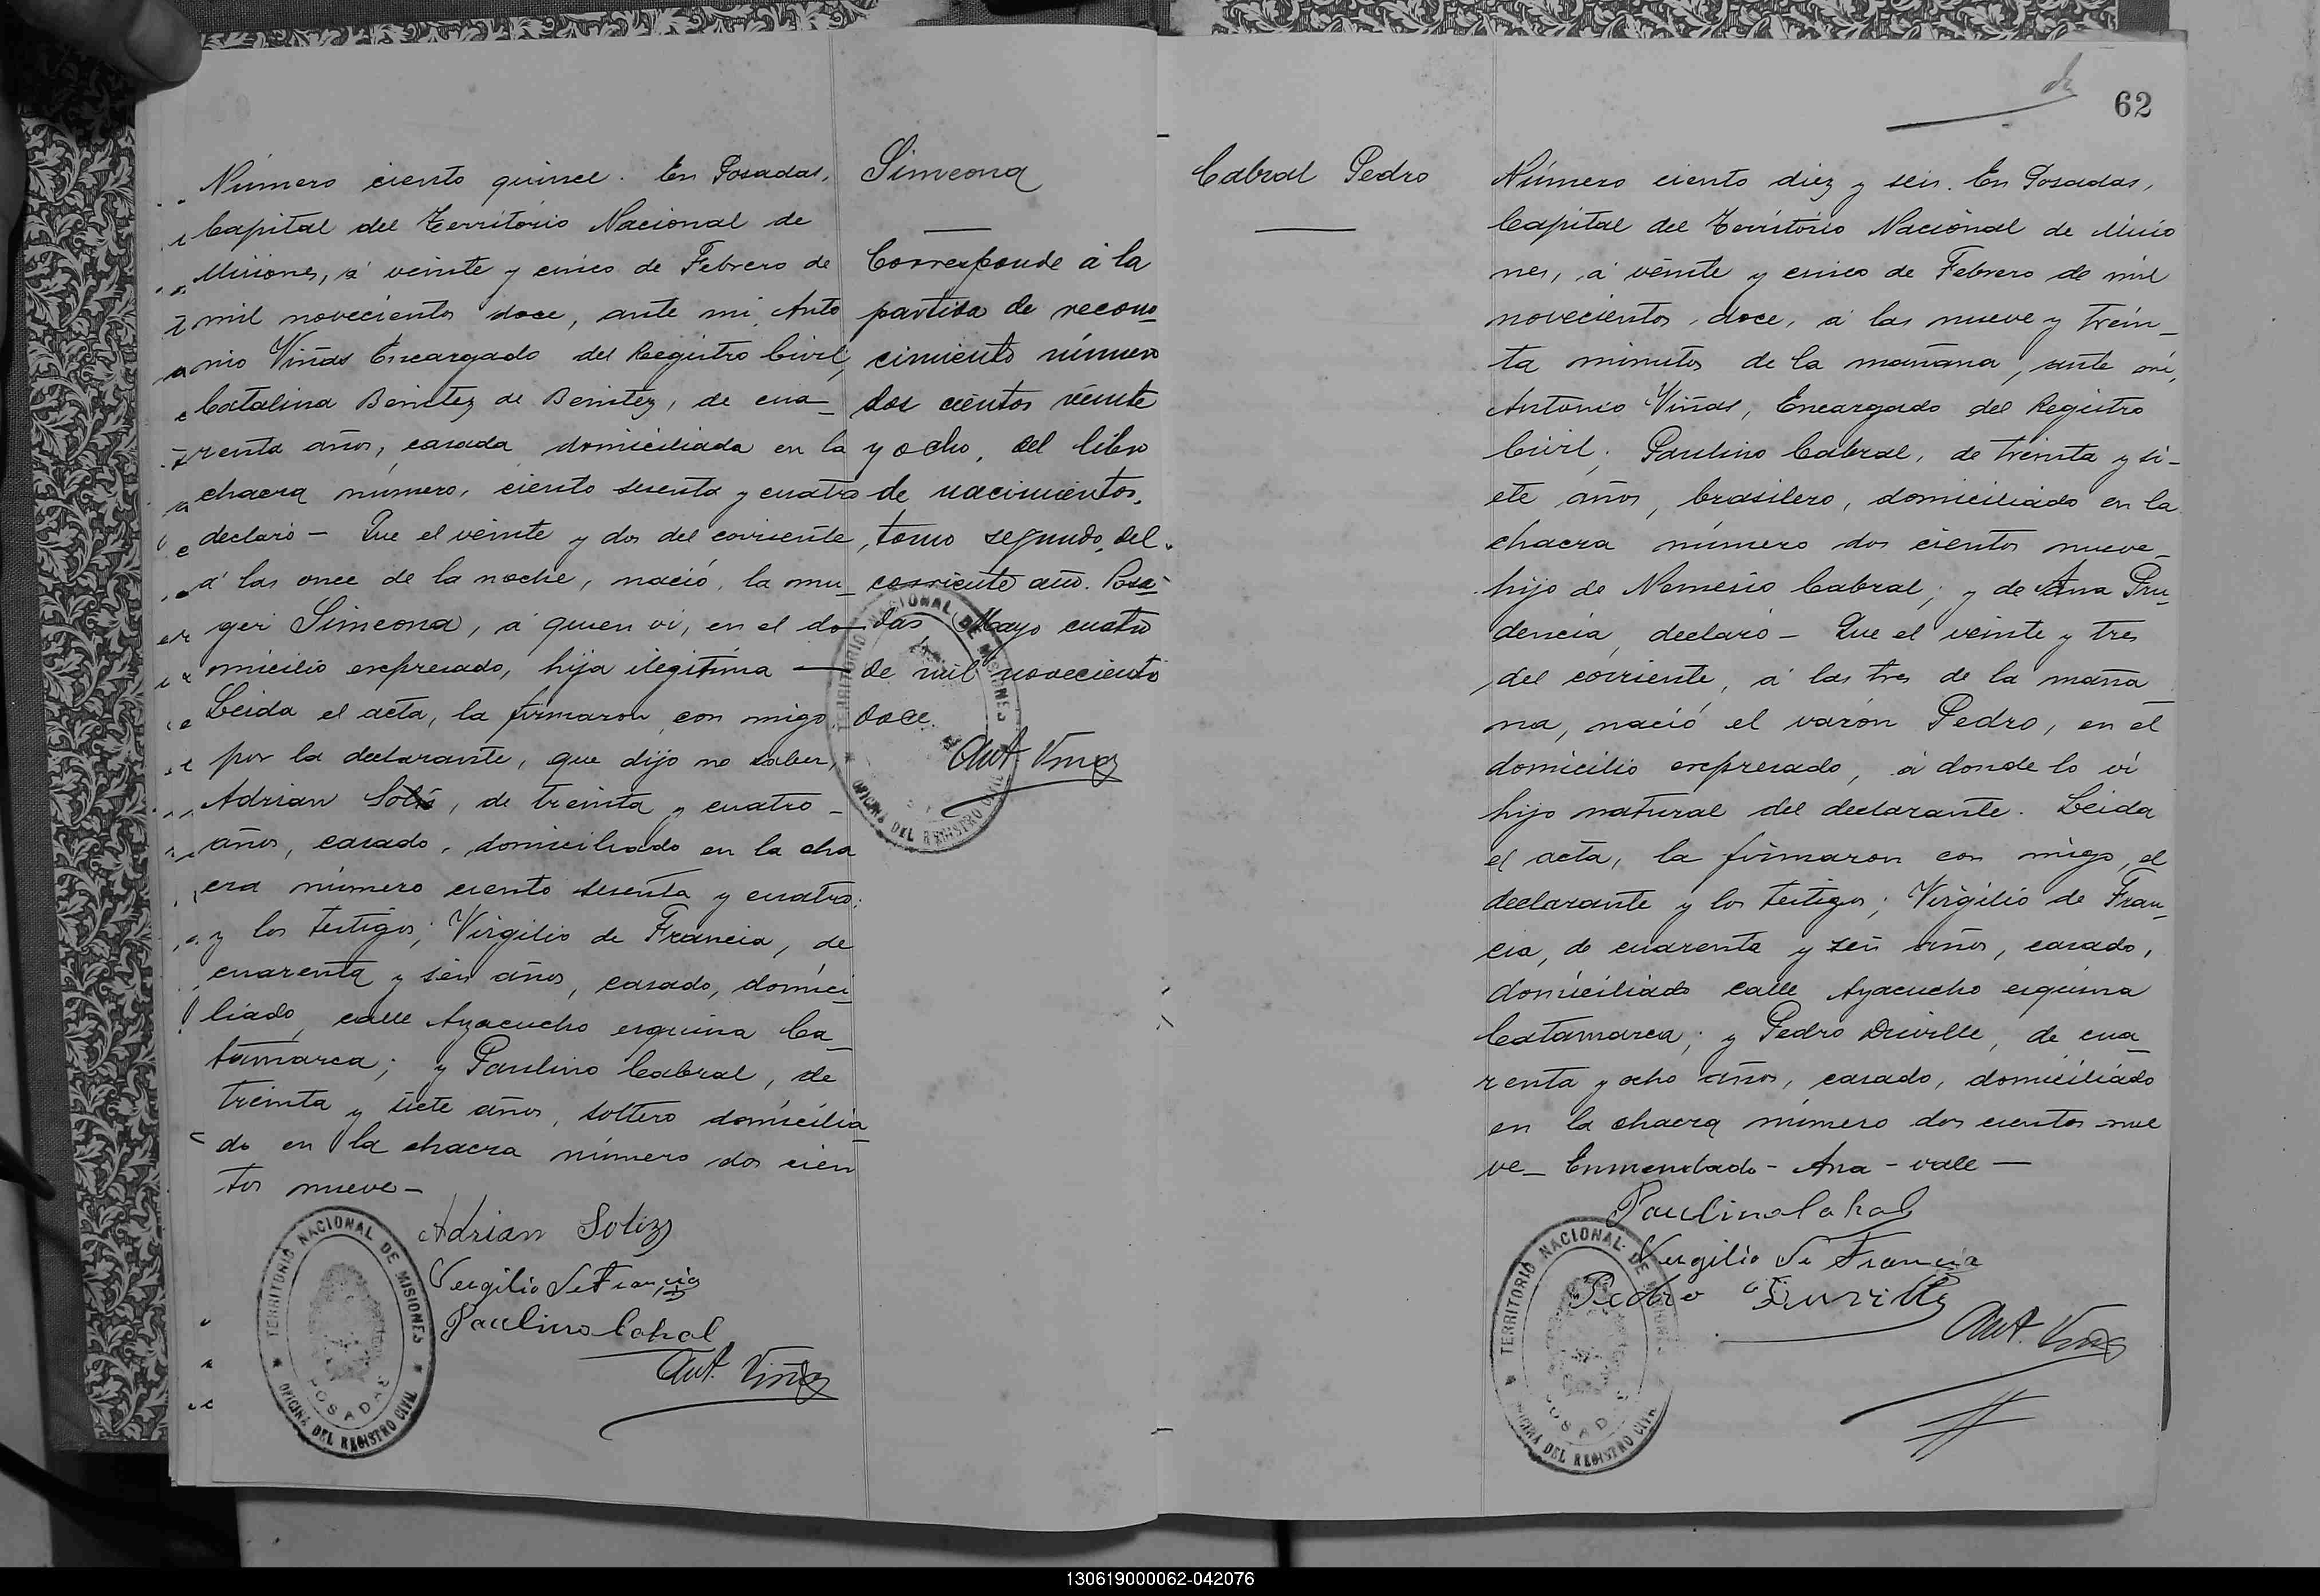 Número ciento quince. En Posadas,
Capital del Territorio Nacional de
Misiones, á veinte y cinco de Febrero de
mil novecientos doce, ante mi, Anto
nio Viñas Encargado del Registro Civil,
Catalina Benitez de Benitez, de cua_
renta años, casada, domiciliada en la
chacra número, ciento sesenta y cuatro
declaró - Que el veinte y dos del corriente,
á las once de la noche, nació, la mu_
ger Simeona, á quien vi, en el do_
micilio expresado, hija ilegitima —
Leida el acta, la firmaron con migo,
por la declarante, que dijo no saber,
Adrian Solis, de treinta y cuatro _
años, casado, domiciliado en la cha
cra número ciento sesenta y cuatro;
y los testigos; Virgilio de Francia, de
cuarenta y seis años, casado, domici_
liado, calle Ayacucho esquina Ca_
tamarca; y Paulino Cabral, de
treinta y siete años, soltero domicilia_
do en la chacra número dos cien
tos nueve -
Adrian Soliz
Vergilio De Francia
Paulino Cabral
Ant. Viñas
TERRITORIO NACIONAL DE MISIONES
POSADAS
OFICINA DEL REGISTRO CIVIL
Simeona
Corresponde á la
partida de recono_
cimiento número
dos cientos veinte
y ocho, del libro
de nacimientos,
tomo segundo, del
corriente año. Posa-
das Mayo cuatro
de mil novecientos
doce.
Ant. Viñas
TERRITORIO NACIONAL DE MISIONES
OFICINA DEL REGISTRO CIVIL
62
Cabral Pedro
Número ciento diez y seis. En Posadas,
Capital del Territorio Nacional de Misio
nes, á veinte y cinco de Febrero de mil
novecientos, doce, á las nueve y trein_
ta minutos de la mañana, ante mi,
Antonio Viñas, Encargado del Registro
Civil; Paulino Cabral, de treinta y si-
ete años, brasilero, domiciliado en la
chacra número dos cientos nueve_
hijo de Nemesio Cabral; y de Ana Pru_
dencia, declaró - Que el veinte y tres
del corriente, á las tres de la maña_
na, nació el varón Pedro, en el
domicilio expresado, á donde lo vi
hijo natural del declarante. Leida
el acta, la firmaron con migo, el
declarante y los testigos; Virgilio de Fran_
cia, de cuarenta y seis años, casado,
domiciliado calle Ayacucho esquina
Catamarca; y Pedro , de cua_
renta y ocho años, casado, domiciliado
en la chacra número dos cientos nue
ve_ Enmendado - Ana - vale —
Paulino Cabral
Vergilio De Francia
Pedro
Ant. Viñas
TERRITORIO NACIONAL DE MISIONES
POSADAS
OFICINA DEL REGISTRO CIVIL
130619000062-042076